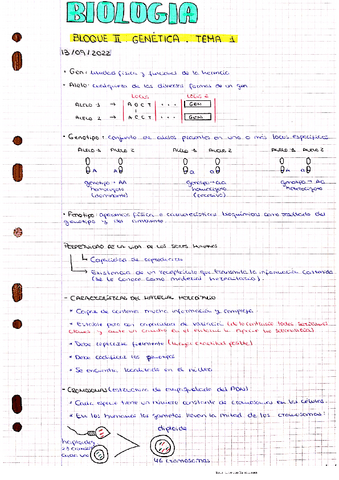 BIOLOGIA
BLOQUE II. GENÉTICA. TEMA 1
13/09/2022
• Gen: unidad física y funcional de la herencia
• Alelo: cualquiera de las distintas formas de un gen
LOCUS LOCUS 2
ALELO 1 → A G C T ... GEN
ALELO 2 → A C C T ... GEN
• Genotipo: conjunto de alelos presentes en uno o más locus específicos
ALELO 1 ALELO 2 ALELO 1 ALELO 2 ALELO 1 ALELO 2
genotipo → AA
homocigoto
genotipo →
homocigoto
(recesivo)
genotipo →
• Fenotipo: apariencia física o características bioquímicas como resultado del
genotipo y del ambiente.
PERPETUIDAD DE LA VIDA DE LOS SERES HUMANOS
Capacidad de reproducirse
Existencia de un receptáculo que transmita la información contenida
(se le conoce como material hereditario).
- CARACTERÍSTICAS DEL MATERIAL HEREDITARIO
• Capaz de contener mucha información y compleja
• Estable pero con capacidad de variación
• Debe replicarse fielmente
• Debe codificar los fenotipos
• Se encuentra localizado en el núcleo
- CROMOSOMAS (estructura de empaquetado del ADN)
• Cada especie tiene un número constante de cromosomas en las células.
• En los humanos los gametos llevan la mitad de los cromosomas:
haploides
diploide
46 cromosomas